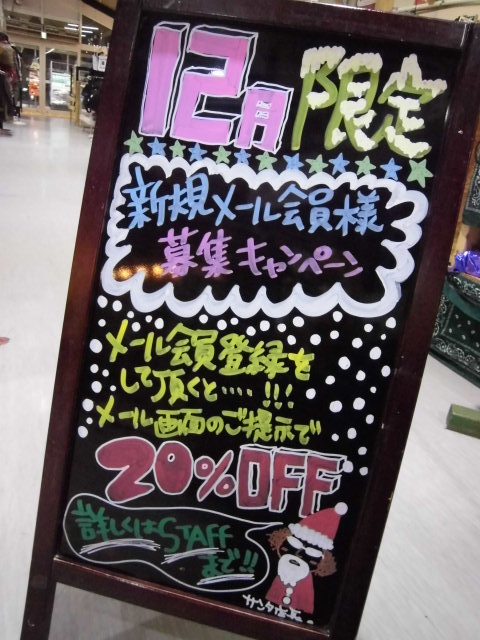 12月限定
新規メール会員様
募集キャンペーン
メール会員登録を
して頂くと‥‥!!!
メール画面のご提示で
20%OFF
詳しくはSTAFF
まで!!
サンタ店長